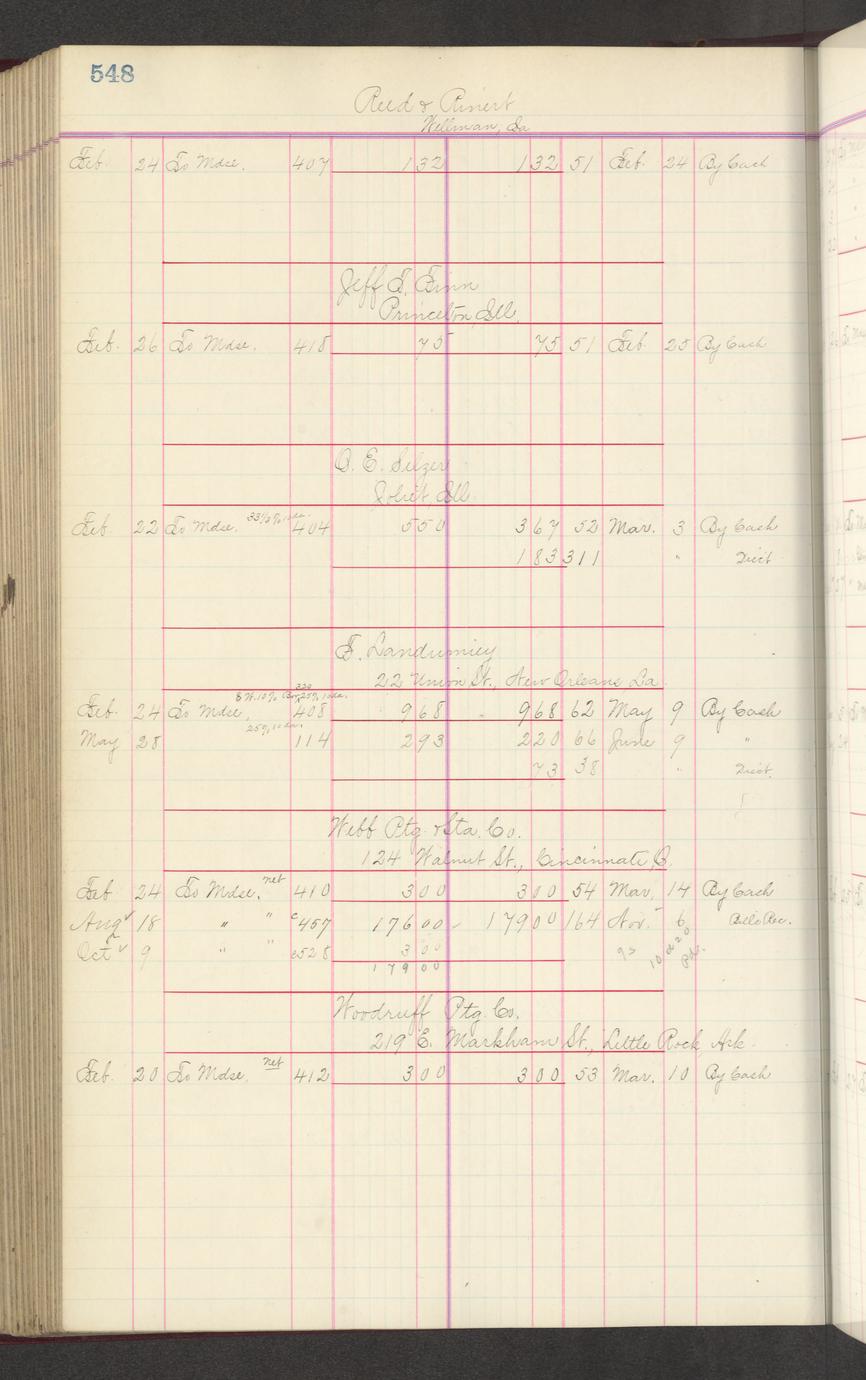 548
Reed & Rinert
Wellman, Ia
Feb. 24 To Mdse. 407 132 132 51 Feb. 24 By Cash
Jeff T. Finn
Princeton, Ill.
Feb. 26 To Mdse. 418 75 75 51 Feb. 25 By Cash
O. E. Selzer
Joliet, Ill.
Feb. 22 To Mdse. 33 1/3 % 10 da. 404 550 367 52 Mar. 3 By Cash
183 311 " Disct
F. Landumiey
22 Union St., New Orleans, La.
Feb. 24 To Mdse. 25% 10 da. 408 968 968 62 May 9 By Cash
May 28 25% 10 da. 114 293 220 66 June 9 "
73 38 " Disct.
Webb Ptg. & Sta. Co.
124 Walnut St., Cincinnati, O.
Feb. 24 To Mdse. net 410 300 300 54 Mar. 14 By Cash
Aug 18 " " c457 17600 17900 164 Nov. 6 Bills Rec.
Oct 9 " " c528 300
17900
Woodruff Ptg. Co.
219 E. Markham St., Little Rock, Ark.
Feb. 20 To Mdse. net 412 300 300 53 Mar. 10 By Cash